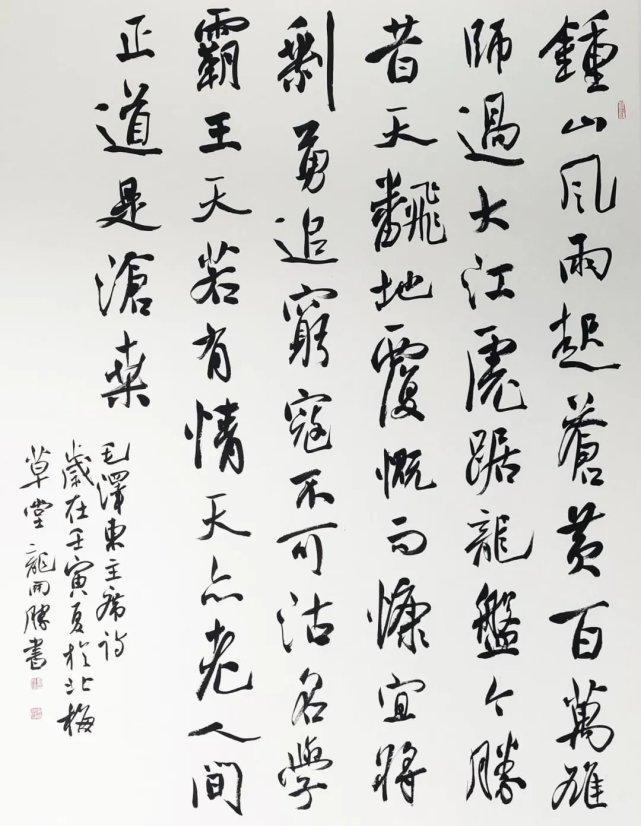 鍾山風雨起蒼黃百萬雄
師過大江虎踞龍盤今勝
昔天翻地覆慨而慷宜將
剩勇追窮寇不可沽名學
霸王天若有情天亦老人間
正道是滄桑
毛澤東主席詩
歲在壬寅夏於北梅
草堂龍開勝書